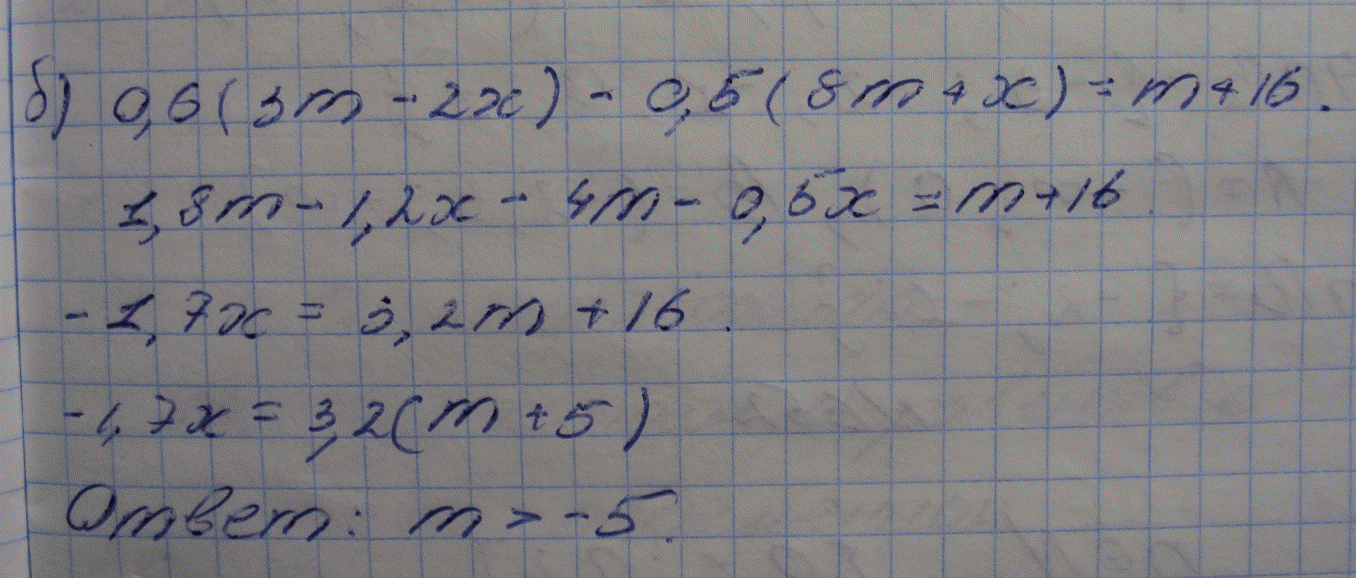 б) 0,6(3m - 2x) - 0,5(8m + x) = m + 16.
1,8m - 1,2x - 4m - 0,5x = m + 16
-1,7x = 3,2m + 16.
-1,7x = 3,2(m + 5)
Ответ: m > -5.